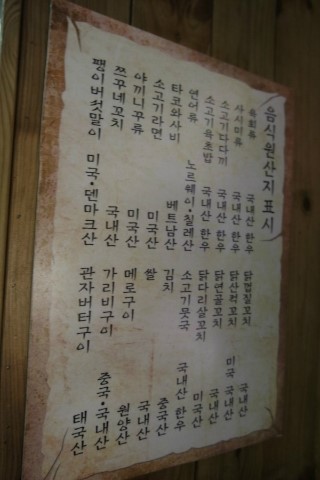 음식원산지 표시
육회류 국내산 한우 닭껍질꼬치 국내산
사시미류 국내산 한우 미국 국내산
소고기다다끼 국내산 한우 닭연골꼬치 국내산
소고기육초밥 국내산 한우 닭다리살꼬치 미국산
연어류 노르웨이·칠레산 소고기뭇국 국내산 한우
타코와사비 베트남산 김치 중국산
소고기라면 미국산 쌀 국내산
야끼니꾸류 미국산 메로구이 원양산
쯔꾸네꼬치 국내산 가리비구이 중국·국내산
팽이버섯말이 미국·덴마크산 관자버터구이 태국산